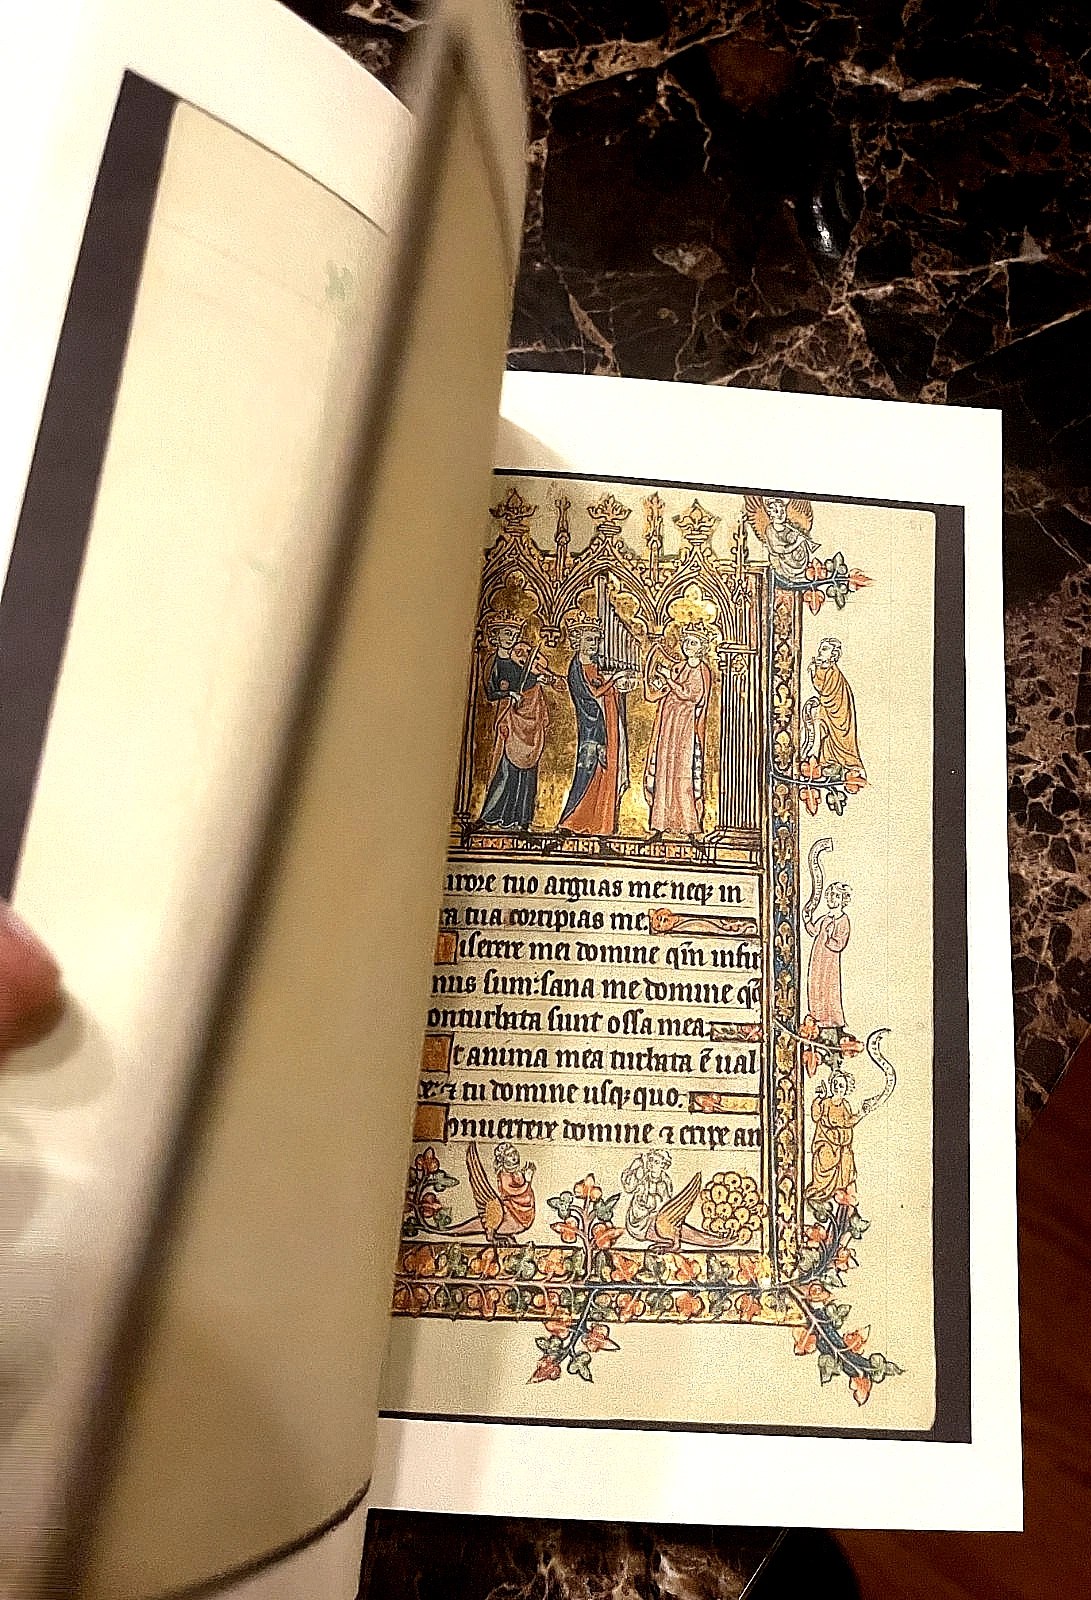 urore tuo arguas me: neqȝ in
ra tua corripias me.
Miserere mei domine qm̄ infir
mus sum: sana me domine qm̄
conturbata sunt ossa mea.
Et anima mea turbata ē ual
de ⁊ tu domine usqȝ quo.
Conuertere domine ⁊ eripe an